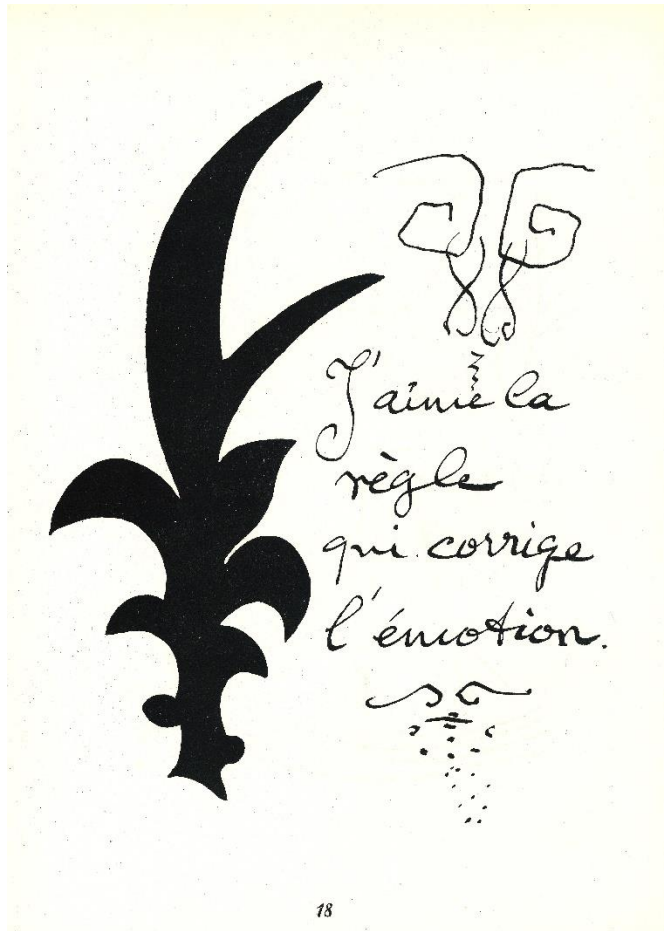 J'aime la
règle
qui corrige
l'émotion.
18